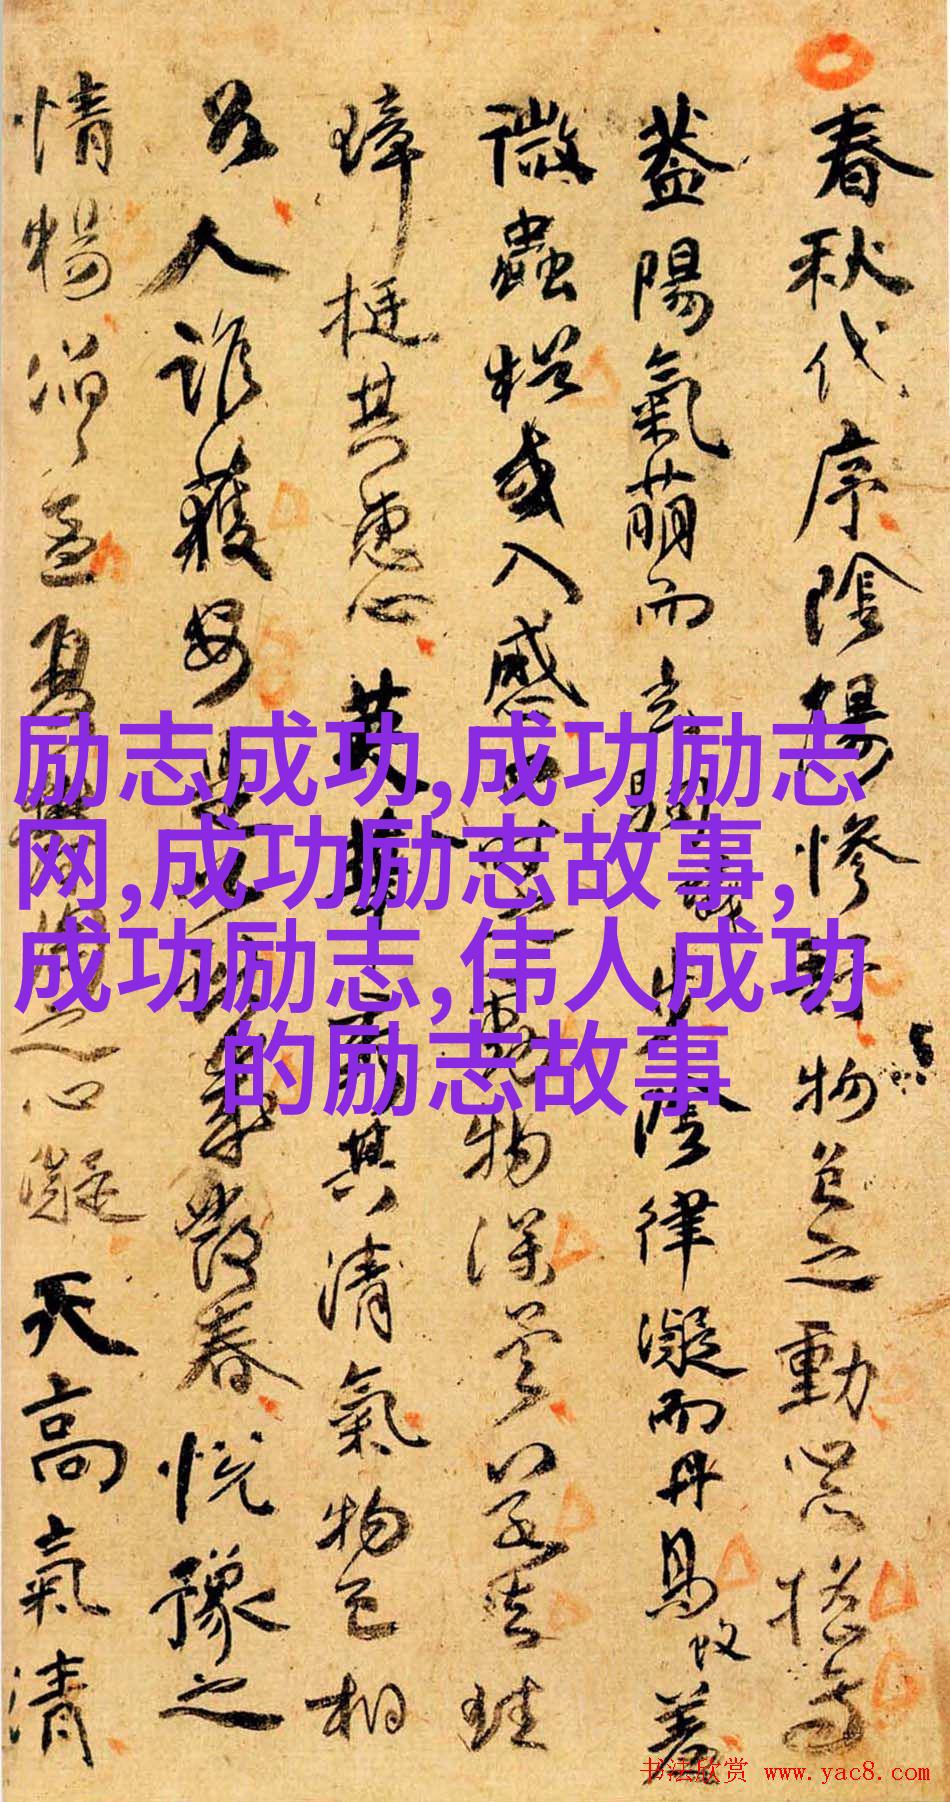 春秋代序陰陽慘舒物色之動心搖焉
蓋陽氣萌而玄駒步陰律凝而丹鳥羞
微蟲猶或入感四時之動物深矣若夫珪
璋挺其惠心英華秀其清氣物色相
召人誰獲安是以獻歲發春悅豫之
情暢滔滔孟夏鬱陶之心凝天高氣清
励志成功,成功励志
网,成功励志故事,
成功励志,伟人成功
的励志故事
书法欣赏 www.yac8.com